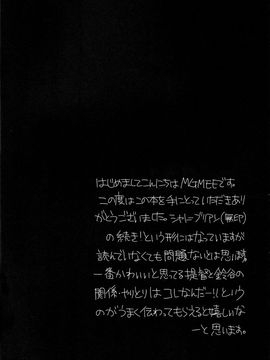 はじめましてこんにちはMGMEEです。
この度はこの本を手にとっていただきあり
がとうございました。シャループリアン(無印)
の続き！という形にはなっていますが
読んでいなくても問題ないとは思います
一番かわいいと思ってる提督と鈴谷の
関係・やりとりはコレなんだー！！という
のがうまく伝わってもらえると嬉しいな
ーと思います。